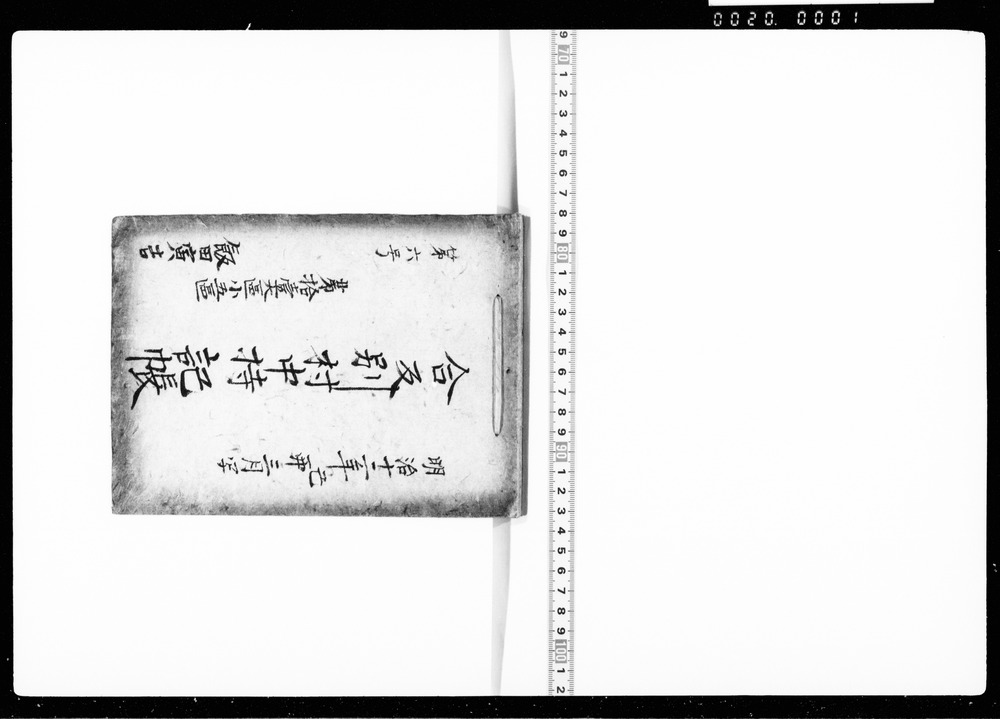 0020. 0001
明治十二年己卯三月
合反別村中持記帳
第拾壹大區小五區
第六号
飯田寅吉
9 70 1 2 3 4 5 6 7 8 9 80 1 2 3 4 5 6 7 8 9 90 1 2 3 4 5 6 7 8 9 100 1 2